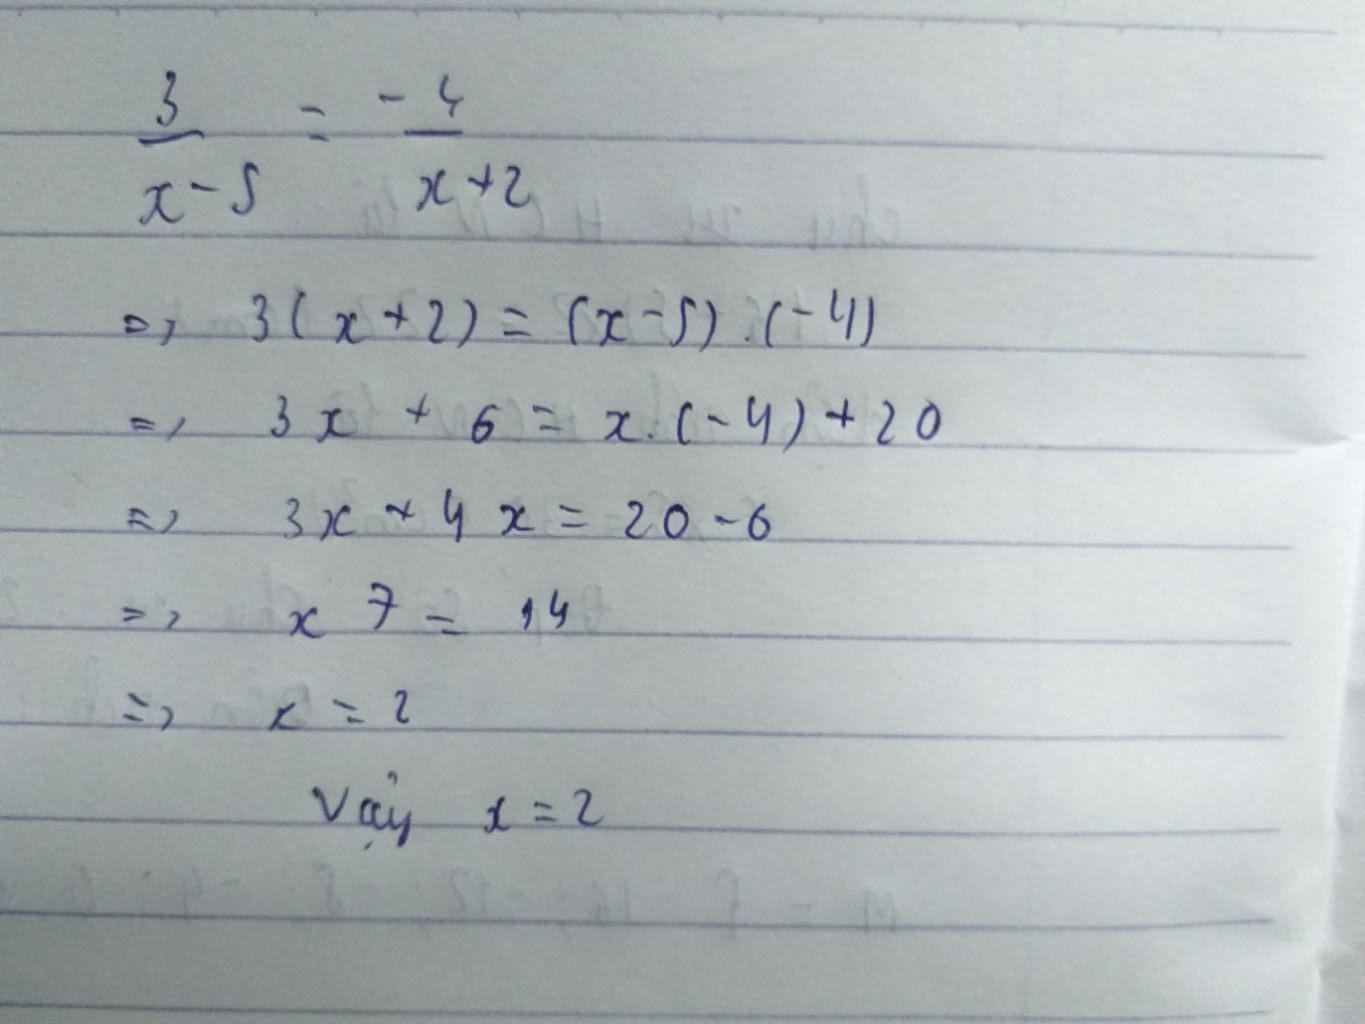 3/(x-5) = -4/(x+2)
=> 3(x+2) = (x-5).(-4)
=> 3x + 6 = x.(-4)+20
=> 3x + 4x = 20-6
=> x 7 = 14
=> x = 2
Vậy x = 2